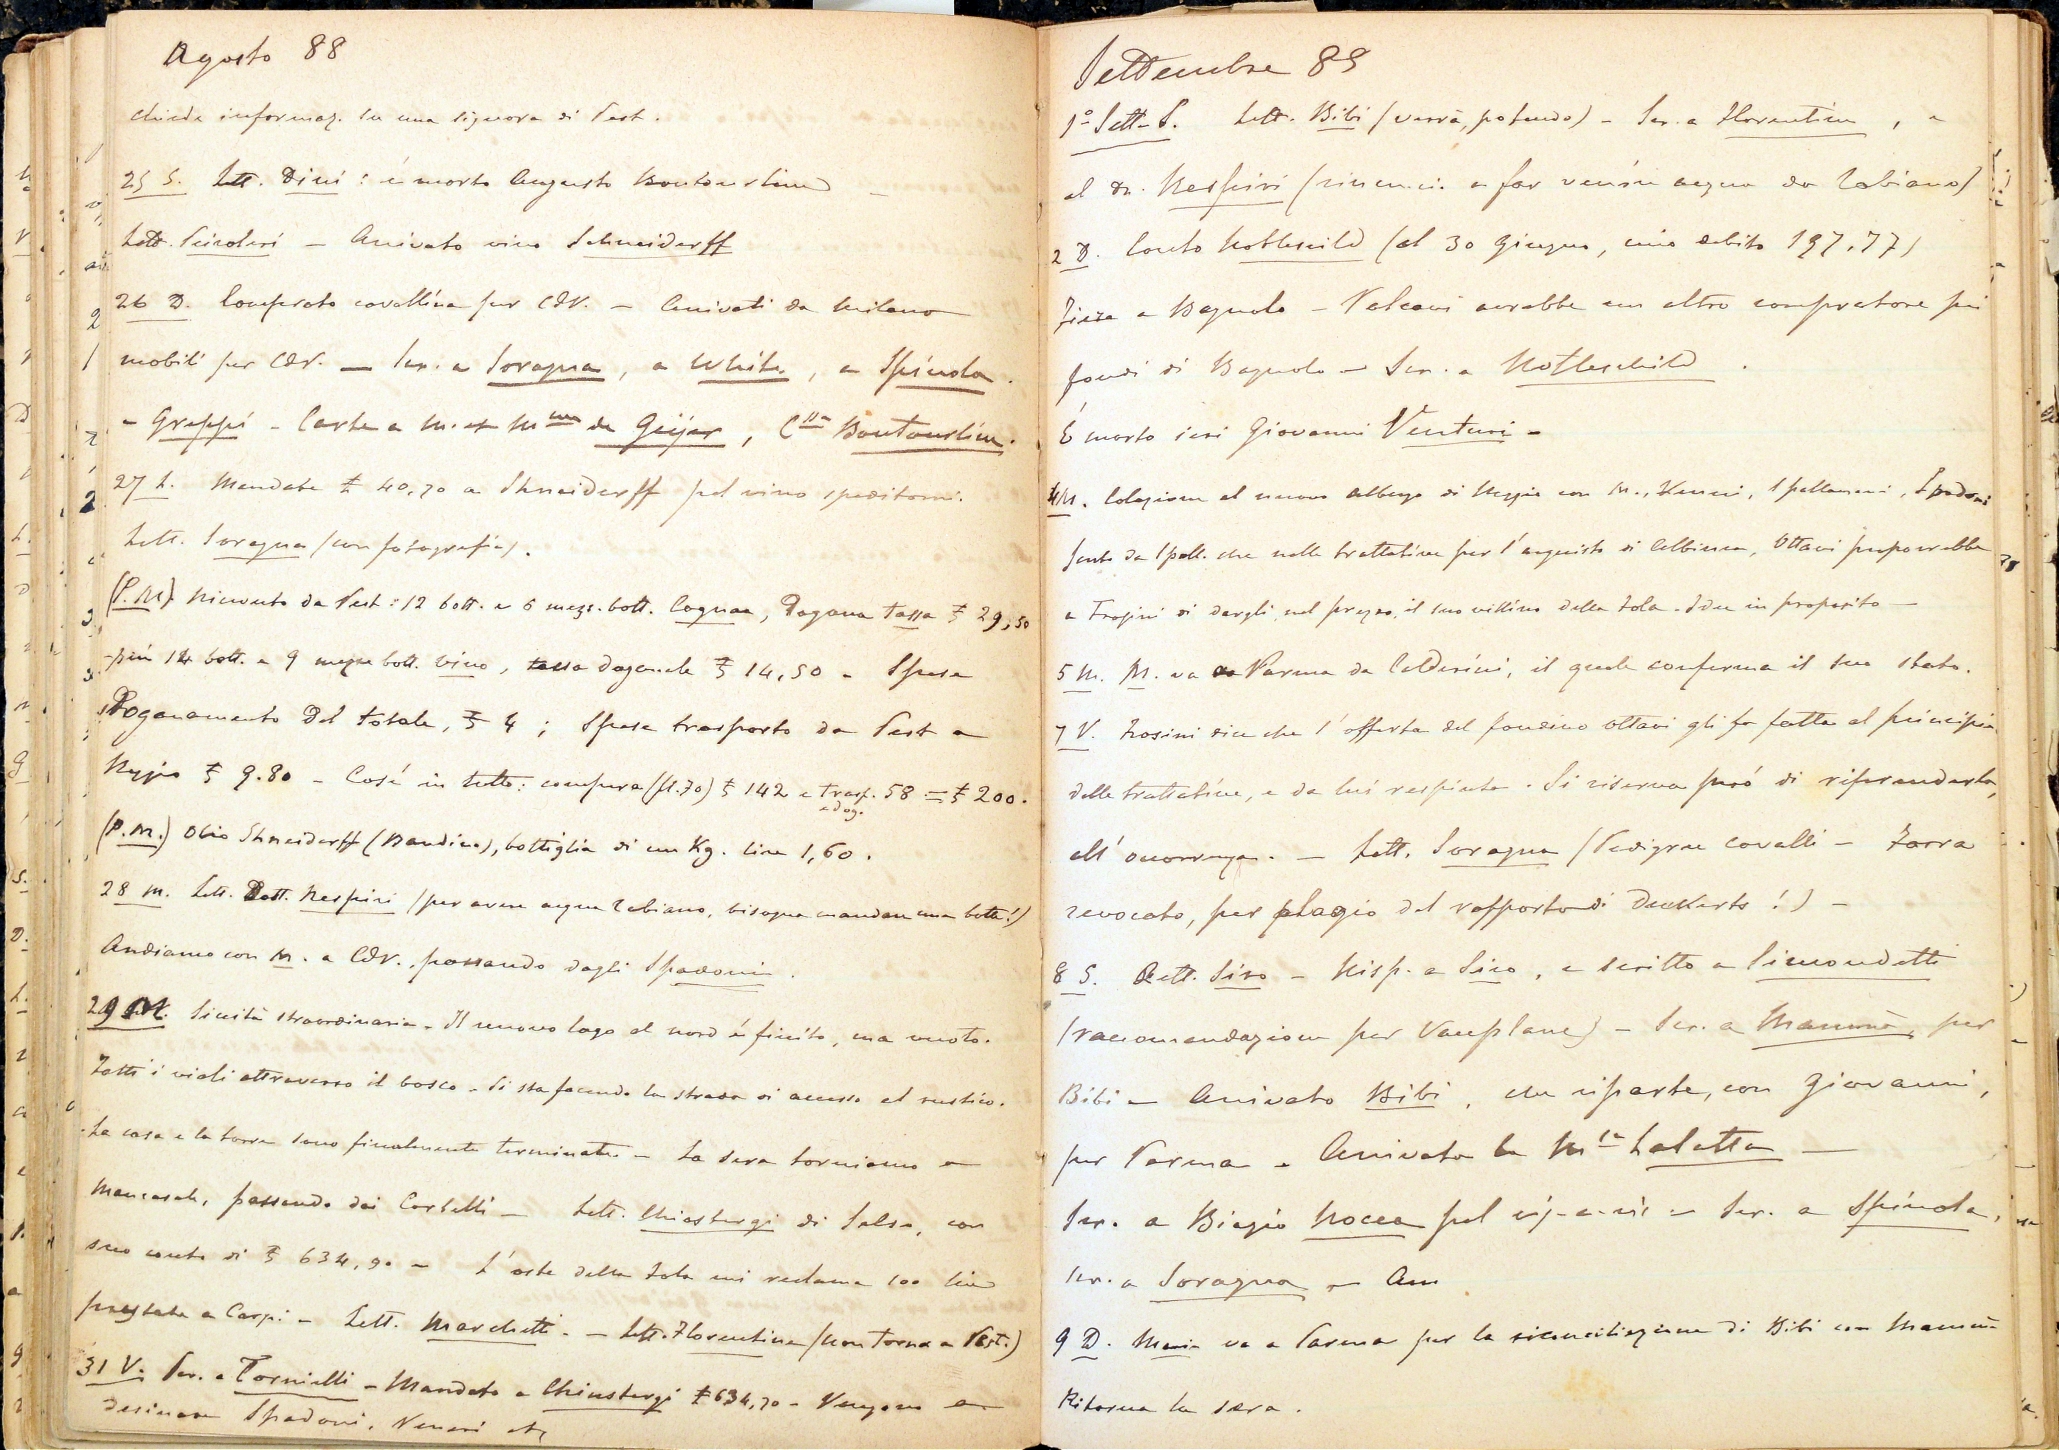 Agosto 88
chiede informaz. su una signora di Pest.
25 S. Lett. Dini: è morto Augusto Boutourline —
Lett. — Arrivato vino Schneiderff
26 D. Comprato cavallina per CdV. — Arrivati da Milano
mobili per CdV. — Scr. a Soragna, a White, a Spinola.
a Greppi — Carte a M. et Mme de Geijer, Csse Boutourline.
27 L. Mandate £ 40,70 a Shneiderff pel vino speditomi.
Lett. Soragna (con fotografia).
(P.M.) Ricevuto da Pest: 12 bott. e 6 mezz. bott. Cognac, Dogana tassa £ 29,50
più 14 bott. e 9 mezze bott. vino, tassa doganale £ 14,50 — Spese
Doganamento del totale, £ 4; Spese trasporto da Pest a
Reggio £ 9.80 — Così in tutto: compera (fl.70) £ 142 e trasp. 58 = £ 200.
e dog.
(P.M.) Olio Shneiderff (Bandino), bottiglia di un Kg. lire 1,60.
28 M. Lett. Dott. Respiri (per avere acqua Tabiano, bisogna mandare una botte!)
Andiamo con M. a CdV., passando dagli Spadoni.
29 M. Siccità straordinaria — Il nuovo lago al nord è finito, ma vuoto.
Fatti i viali attraverso il bosco — Si sta facendo la strada di accesso al rustico.
La casa e la torre sono finalmente terminate — La sera torniamo a
Mancasale, passando dai Corbelli — Lett. Chiostergi di Salso, con
suo conto di £ 634,90 — L'oste della Sola mi reclama 100 lire
prestate a Carpi — Lett. Marchetti. — Lett. Florentine (non torna a Pest.)
31 V. Scr. a Tornielli — Mandato a Chiostergi £ 634,90 — Vengono a
desinare Spadoni, Veneri etc
Settembre 88
1° Sett. S. Lett. Bibi (verrà, potendo) — Scr. a Florentine, e
al Dr. Respiri (rinuncio a far venire acqua da Tabiano)
2 D. Conto Rothschild (al 30 Giugno, mio debito 197.77)
Fiera a Bagnolo — avrebbe un altro compratore pei
fondi di Bagnolo — Scr. a Rothschild.
È morto ieri Giovanni Venturi —
4 M. Colazione al nuovo albergo di Reggio con M., Veneri, Spallanzani, Spadoni
Sento da Spall. che nelle trattative per l'acquisto di Albinea, Ottavi proporrebbe
a di dargli, nel prezzo, il suo villino della Sola. Idee in proposito —
5 M. M. va a Parma da Calderini, il quale conferma il suo stato.
7 V. dice che l'offerta del fondino Ottavi gli fu fatta al principio
delle trattative, e da lui respinta. Si riserva però di riprenderla,
all'occorrenza. — Lett. Soragna (Pedigree cavalli — Zorra
revocato, per plagio del rapporto di Deckerts!) —
8 S. Lett. Siro — Risp. a Siro, e scritto a Simondetti
(raccomandazione per Vauplane) — Scr. a Mammà, per
Bibi — Arrivato Bibi, che riparte, con Giovanni,
per Parma — Arrivata la Msa Lalatta —
Scr. a Biagio Rocca pel vis-à-vis — Scr. a Spinola,
scr. a Soragna —
9 D. Maria va a Parma per la riconciliazione di Bibi con Mammà
Ritorna la sera.